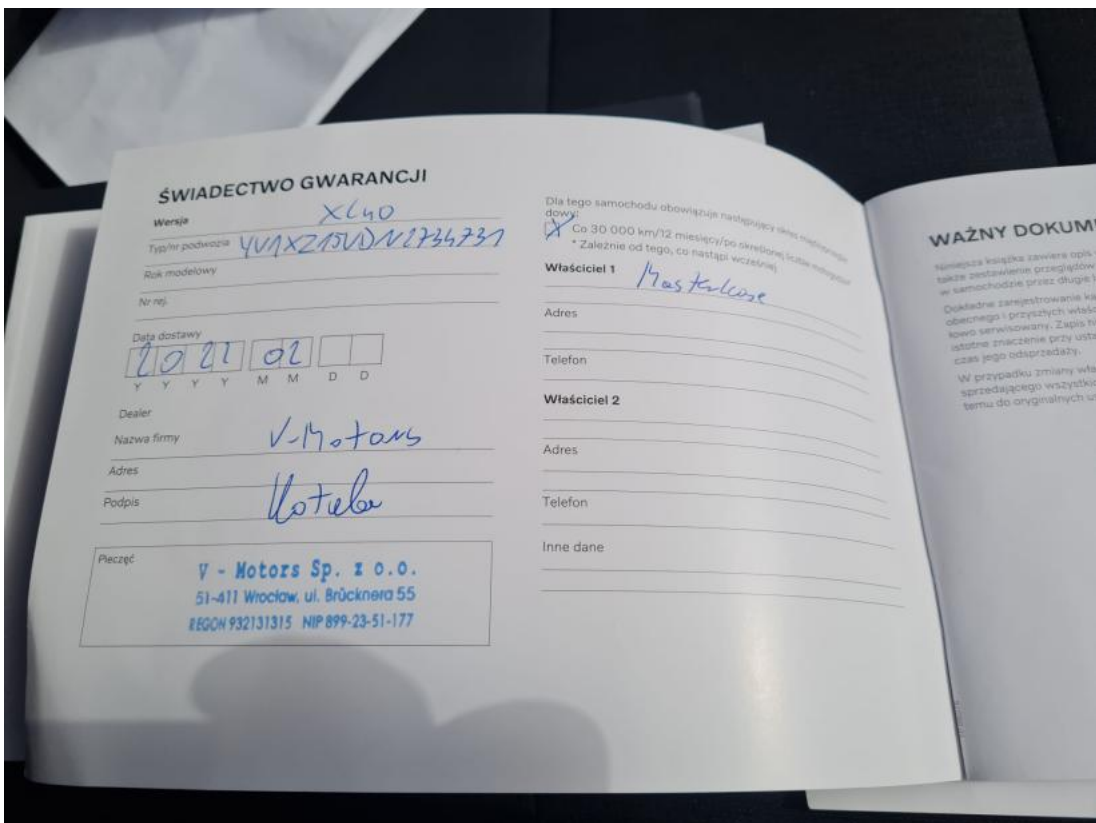 ŚWIADECTWO GWARANCJI
Wersja XC40
Typ/nr podwozia YV1XZ15VDN2734731
Rok modelowy
Nr rej.
Data dostawy
2022 02
Y Y Y Y M M D D
Dealer
Nazwa firmy V-Motors
Adres
Podpis
Pieczęć
V - Motors Sp. z o.o.
51-411 Wrocław, ul. Brücknera 55
REGON 932131315 NIP 899-23-51-177
Dla tego samochodu obowiązuje następujący okres
dowy:
X Co 30 000 km/12 miesięcy/po określonej liczbie
* Zależnie od tego, co nastąpi wcześniej
Właściciel 1 Masterlease
Adres
Telefon
Właściciel 2
Adres
Telefon
Inne dane
WAŻNY DOKUM
Niniejsza książka zawiera opis
także zestawienie przeglądów
w samochodzie przez długie
Dokładne zarejestrowanie
obecnego i przyszłych
łowo serwisowany. Zapis
istotne znaczenie przy
czas jego odsprzedaży.
W przypadku zmiany
sprzedającego
temu do oryginalnych